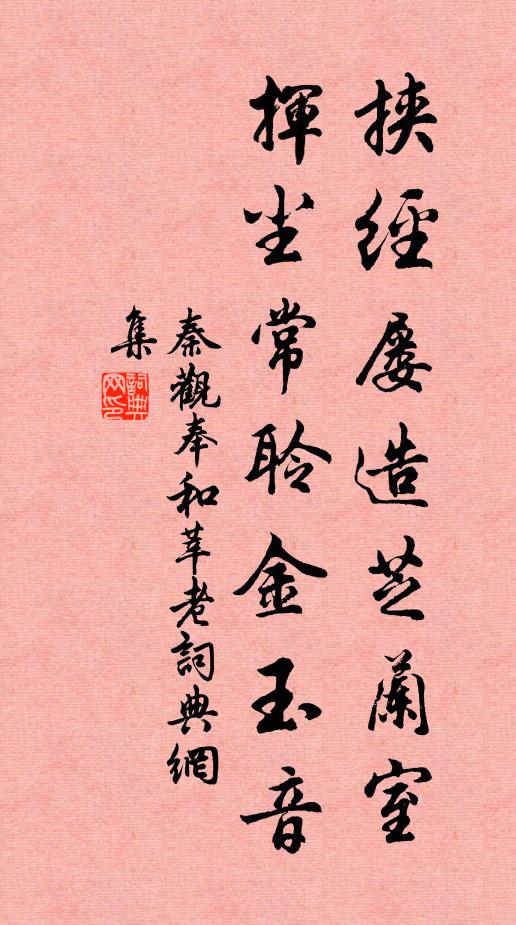 挾經屡造芝蘭室
揮尘常聆金玉音
秦觀奉和莘老詞典網
集
詞典網印